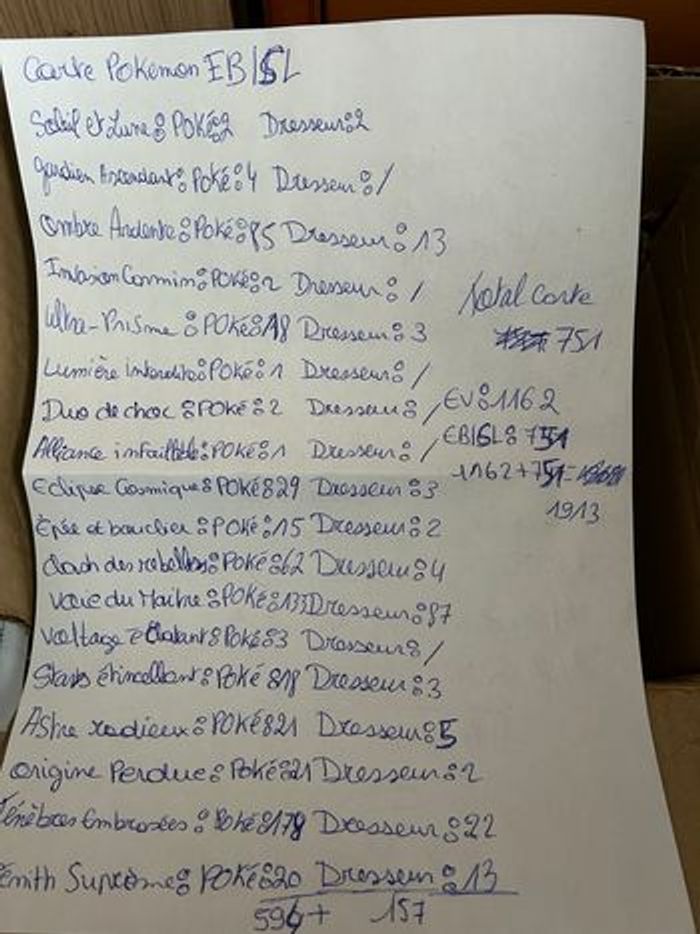 Carte Pokemon EB/SL
Soleil et Lune : Poké : 2 Dresseur : 2
gardien Ascendant : Poké : 4 Dresseur : /
Ombre Ardente : Poké : 85 Dresseur : 13
Invasion Carmin : Poké : 2 Dresseur : /
Ultra-Prisme : Poké : 18 Dresseur : 3
Lumière interdite : Poké : 1 Dresseur : /
Duo de choc : Poké : 2 Dresseur : /
Alliance infaillible : Poké : 1 Dresseur : /
Eclipse Cosmique : Poké : 29 Dresseur : 3
Épée et bouclier : Poké : 15 Dresseur : 2
clash des rebelles : Poké : 62 Dresseur : 4
Voie du Maitre : Poké : 133 Dresseur : 87
Voltage Éclatant : Poké : 3 Dresseur : /
Stars étincellant : Poké : 18 Dresseur : 3
Astre radieux : Poké : 21 Dresseur : 5
Origine Perdue : Poké : 21 Dresseur : 2
Ténèbres Embrasées : Poké : 178 Dresseur : 22
Zénith Suprême : Poké : 20 Dresseur : 13
594 + 157
Total Carte
751
EV : 1162
EB/SL : 751
1162 + 751 =
1913